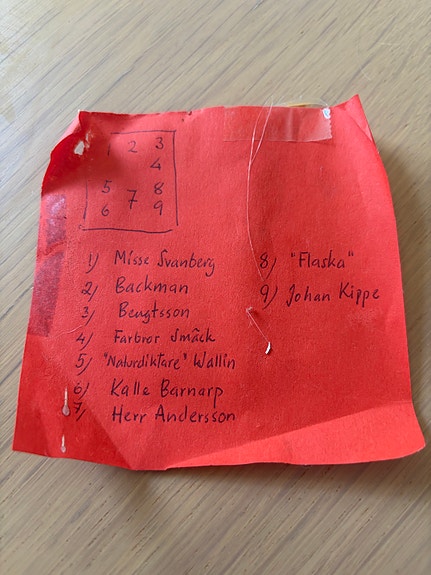 1 2 3
4
5 7 8
6 9
1) Misse Svanberg
2) Backman
3) Bengtsson
4) Farbror Smäck
5) "Naturdiktare" Wallin
6) Kalle Barnarp
7) Herr Andersson
8) "Flaska"
9) Johan Kippe